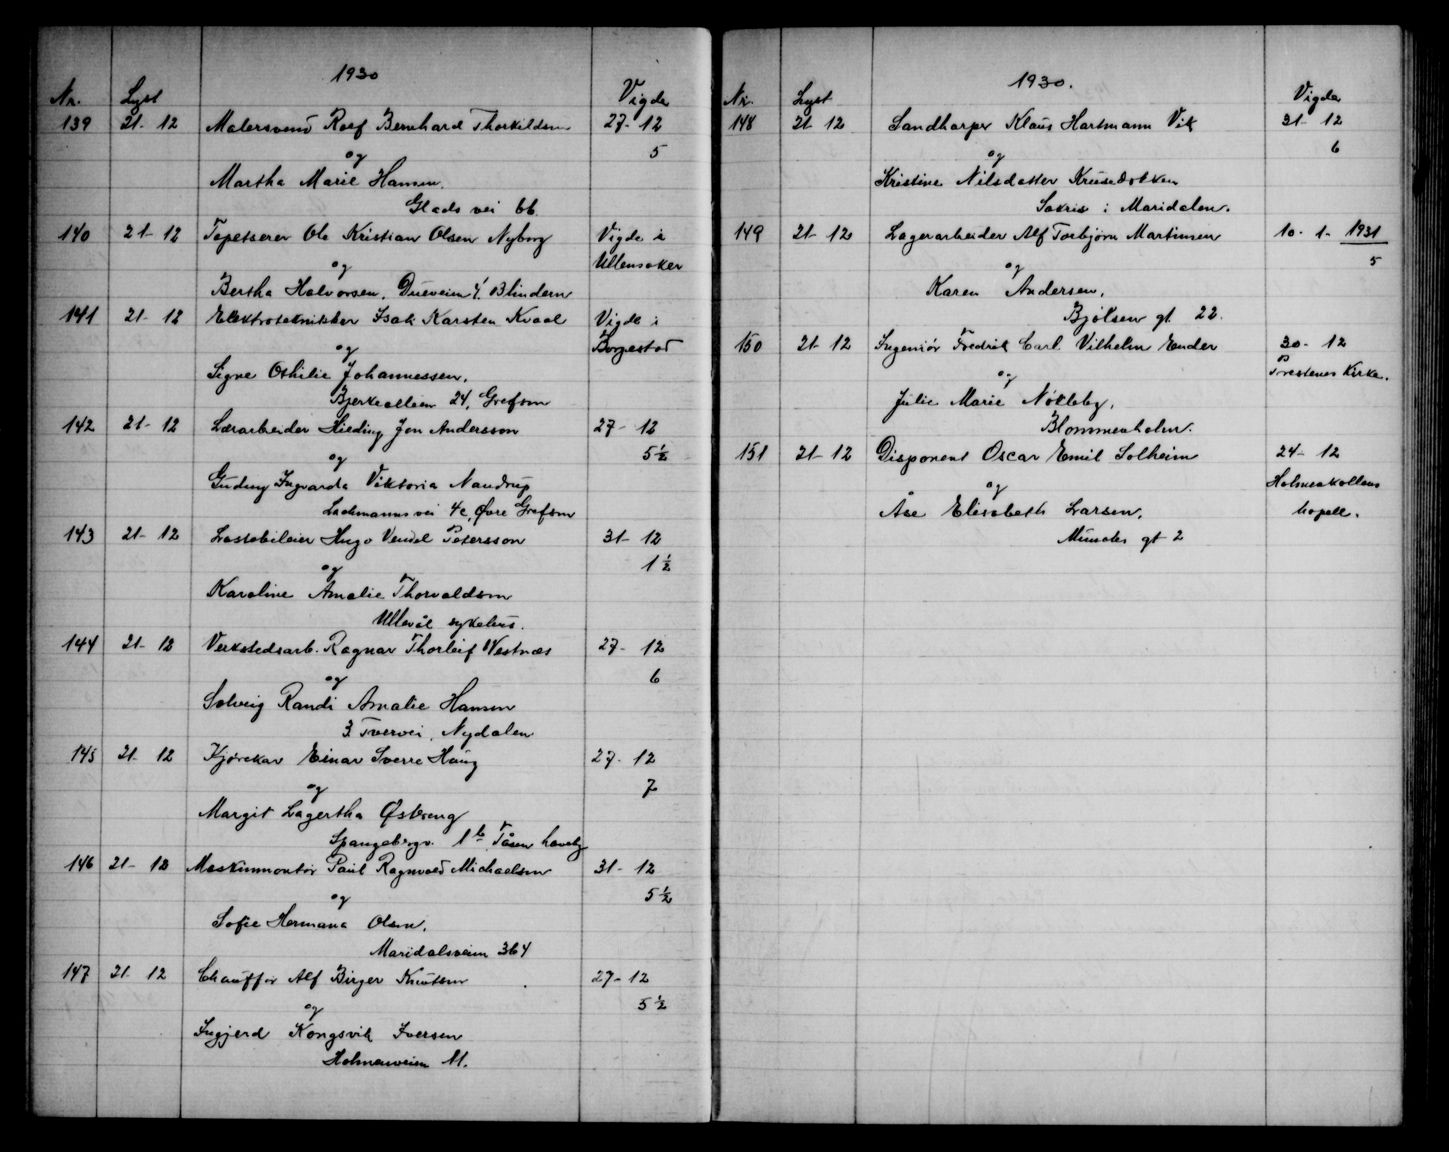 1930
Nr. Lyst Vigde
139 21-12 Malersvend Rolf Bernhard Thorkildsen 27-12
og 5
Martha Marie Hansen,
Glads vei 66
140 21-12 Tapetserer Ole Kristian Olsen Nyborg Vigde i
og Ullensaker
Bertha Halvorsen, Dueveien 4, Blindern
141 21-12 Elektrotekniker Isak Karsten Kvaal Vigde i
og Borgestad
Signe Othilie Johannessen,
Bjerkealleen 24, Grefsen
142 21-12 Lærarbeider Hieding Jon Andersson 27-12
og 5½
Gudny Ingvarda Viktoria Naudrup
Lachmanns vei 4c, Øvre Grefsen
143 21-12 Lastebileier Hugo Vendel Petersson 31-12
og 1½
Karoline Amalie Thorvaldsen
Ullevål sykehus.
144 21-12 Verkstedsarb. Ragnar Thorleif Westnæs 27-12
og 6
Solveig Randi Amalie Hansen
3 Tvervei, Nydalen
145 21-12 Kjørekar Einar Sverre Haug 27-12
og 7
Margit Lagertha Østreng
Spangbergv. 1b Tåsen haveby
146 21-12 Maskinmontør Paul Ragnvald Michaelsen 31-12
og 5½
Sofie Hermana Olsen,
Maridalsveien 364
147 21-12 Chauffør Alf Birger Knutsen 27-12
og 5½
Ingjerd Kongsvik Iversen
Holmenveien 11.
1930.
Nr. Lyst Vigde
148 21-12 Sandharper Klaus Hartmann Vik 31-12
og 6
Kristine Nilsdatter Krusedokken
Sakris i Maridalen.
149 21-12 Lagerarbeider Alf Torbjørn Martinsen 10-1-1931
og 5
Karen Andersen,
Bjølsen gt 22.
150 21-12 Ingeniør Fredrik Carl Vilhelm Ender 30-12
og Prestenes Kirke.
Julie Marie Nøkleby,
Blommenholm.
151 21-12 Disponent Oscar Emil Solheim 24-12
og Holmenkollens
Åse Elisabeth Larsen, kapell.
Munches gt 2